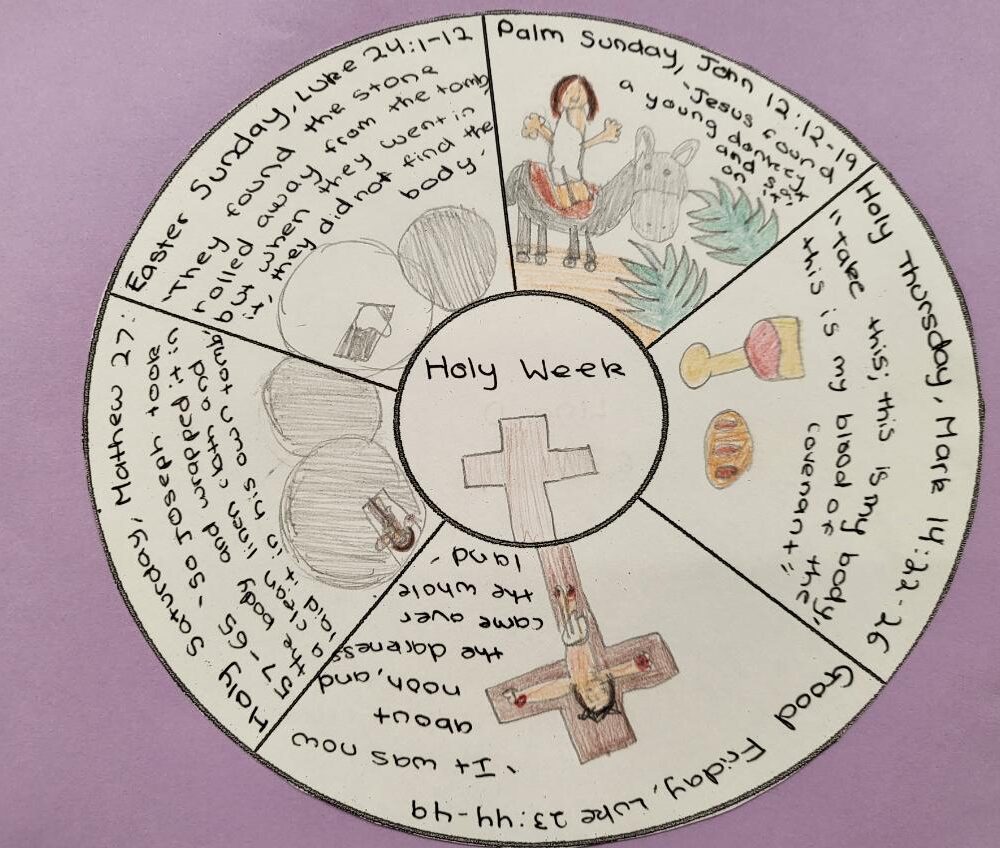 Holy Week
Palm Sunday, John 12:12-19
'Jesus found
a young donkey
and sat
on it.'
Holy Thursday, Mark 14:22-26
"Take this; this is my body,
this is my blood of the
covenant"
Good Friday, Luke 23:44-49
'It was now
about
noon, and
the darkness
came over
the whole
land'
Holy Saturday, Mathew 27:
57-65 'So Joseph took
the body and wrapped it in
a clean linen cloth and
laid it in his own tomb'
Easter Sunday, Luke 24:1-12
'They found the stone
rolled away from the tomb,
but when they went in
it, they did not find the
body.'